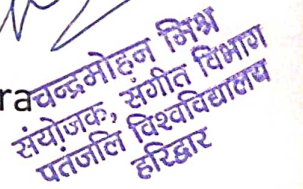 ra
चन्द्रमोहन मिश्र
संयोजक, संगीत विभाग
पतंजलि विश्वविद्यालय
हरिद्वार